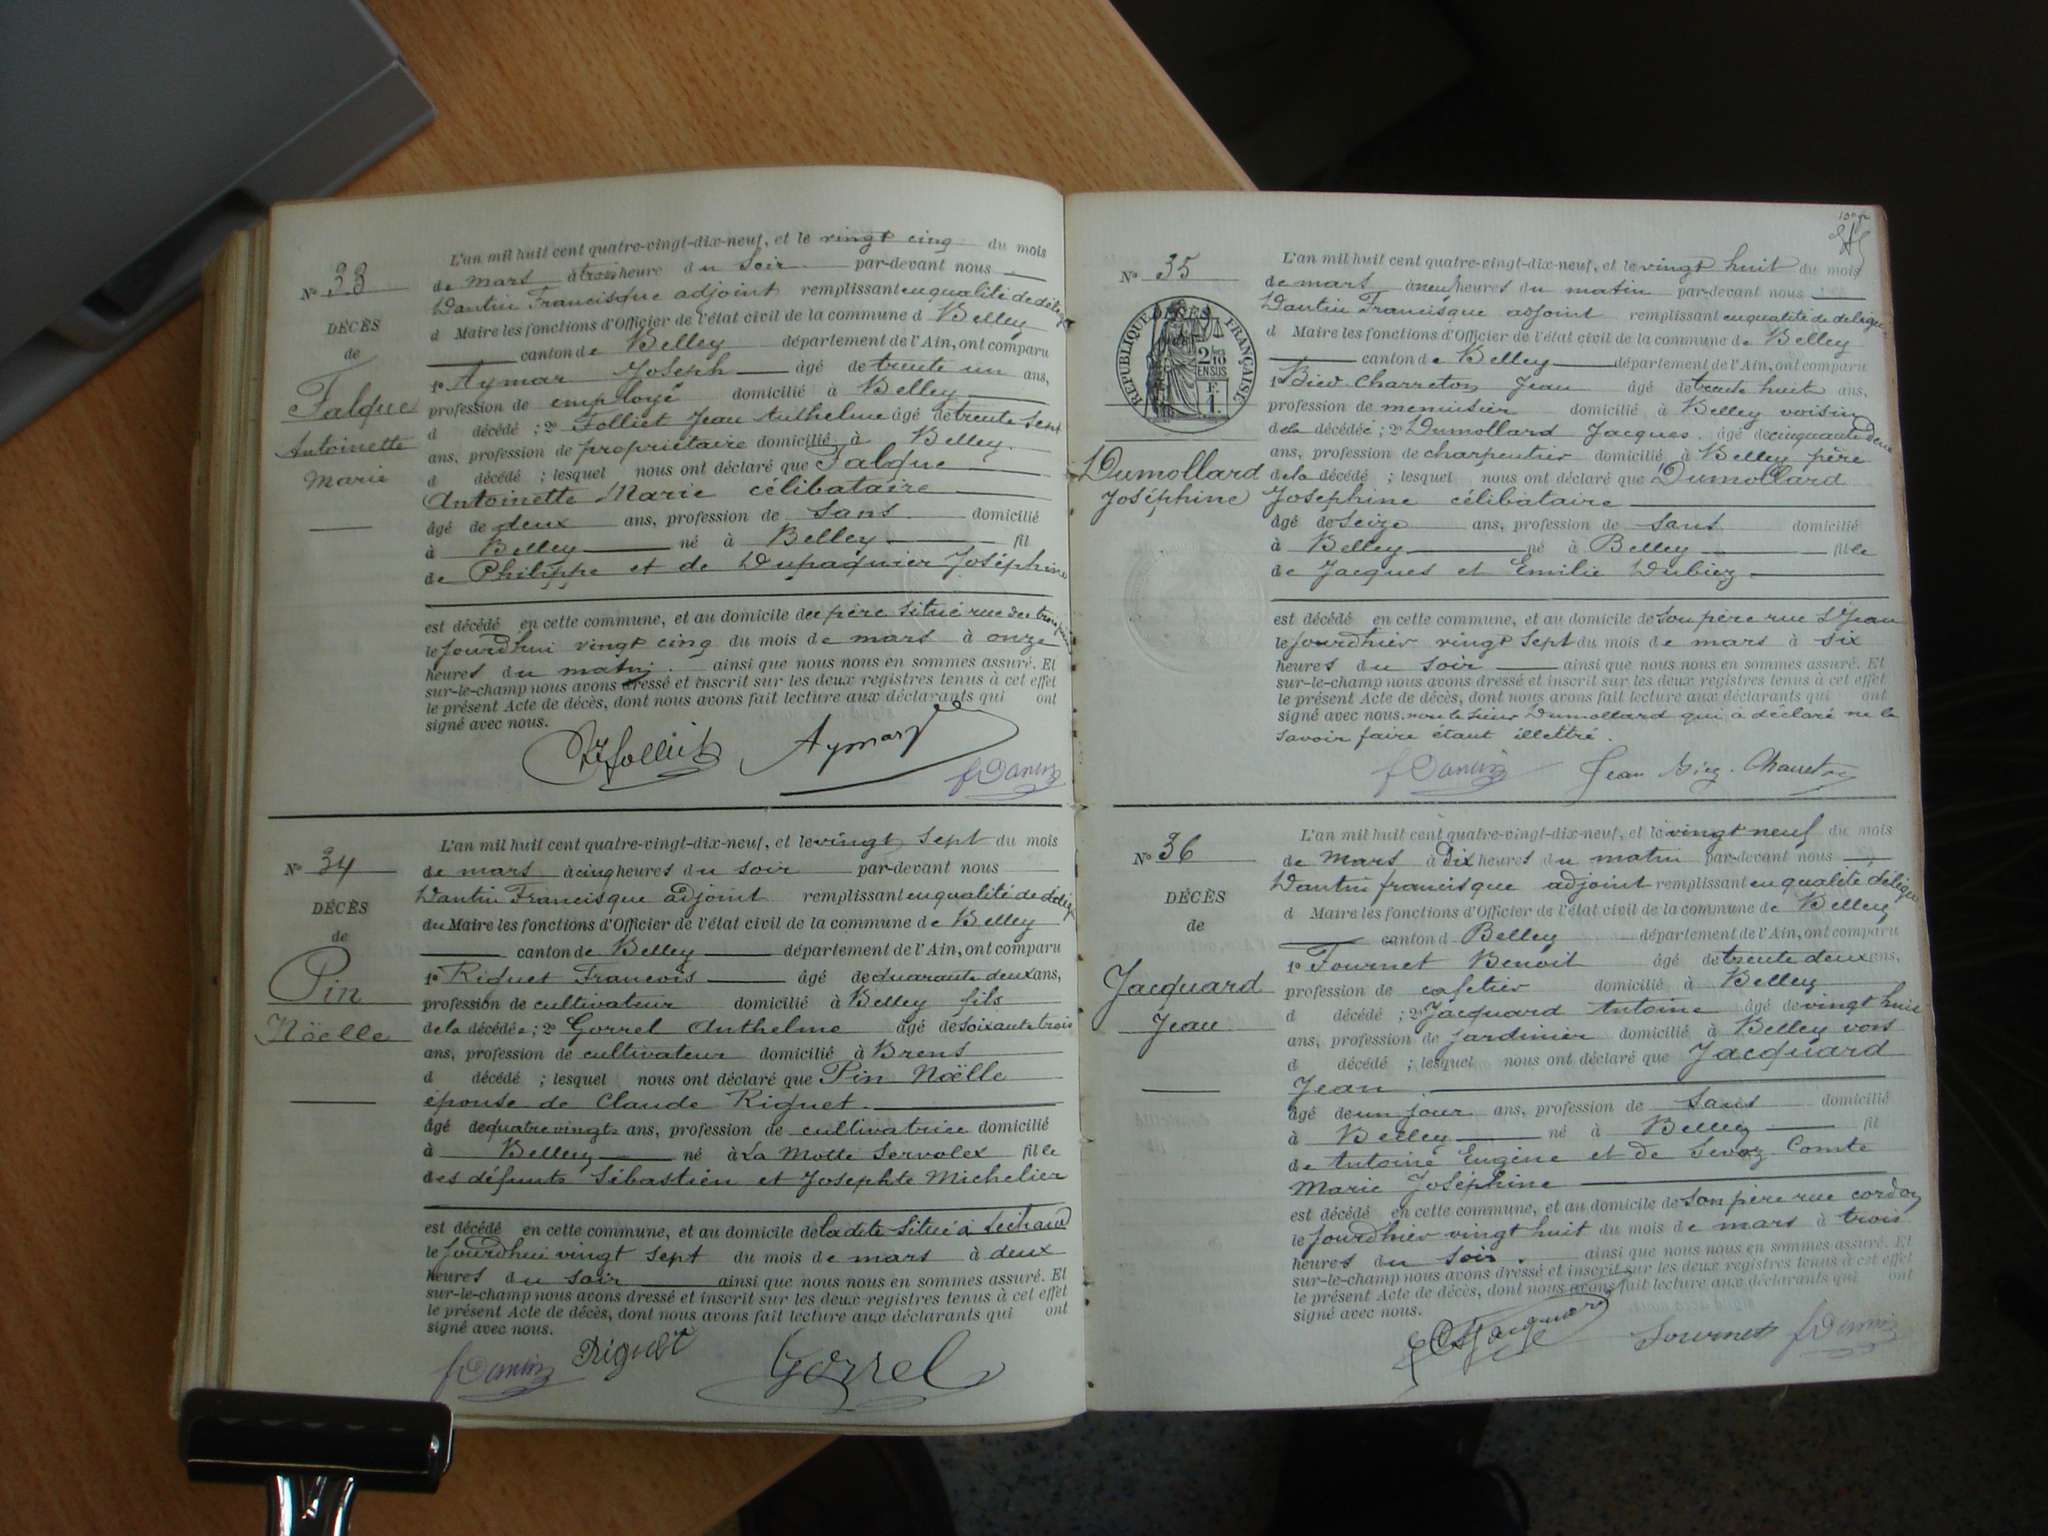 L'an mil huit cent quatre-vingt-dix-neuf, et le vingt cinq du mois
No 33
de mars à trois heure du soir par-devant nous
Dantin Francisque adjoint remplissant en qualité de délégué
DÉCÈS
d Maire les fonctions d'Officier de l'état civil de la commune d Belley
de
canton de Belley département de l'Ain, ont comparu
Falque
1o Aymar Joseph âgé de trente un ans,
profession de employé domicilié à Belley
Antoinette
d décédé ; 2o Folliet Jean Anthelme âgé de trente sept
Marie
ans, profession de propriétaire domicilié à Belley
d décédé ; lesquel nous ont déclaré que Falque
Antoinette Marie célibataire
âgé de deux ans, profession de sans domicilié
à Belley né à Belley fil
de Philippe et de Dupaquier Joséphine
est décédé en cette commune, et au domicile de père situé rue des
le jourdhui vingt cinq du mois de mars à onze
heures du matin ainsi que nous nous en sommes assuré. Et
sur-le-champ nous avons dressé et inscrit sur les deux registres tenus à cet effet
le présent Acte de décès, dont nous avons fait lecture aux déclarants qui ont
signé avec nous.
Folliet Aymar
f Dantin
L'an mil huit cent quatre-vingt-dix-neuf, et le vingt sept du mois
No 34
de mars à cinq heures du soir par-devant nous
Dantin Francisque adjoint remplissant en qualité de délég
DÉCÈS
du Maire les fonctions d'Officier de l'état civil de la commune de Belley
de
canton de Belley département de l'Ain, ont comparu
Pin
1o Riguet Francois âgé de quarante deux ans,
profession de cultivateur domicilié à Belley fils
Nöelle
de la décédée ; 2o Gorrel Anthelme âgé de soixante trois
ans, profession de cultivateur domicilié à Brens
d décédé ; lesquel nous ont déclaré que Pin Noëlle
épouse de Claude Riguet
âgé de quatre vingts ans, profession de cultivatrice domicilié
à Belley né à La Motte Servolex fille
des défunts Sébastien et Josephte Michelier
est décédé en cette commune, et au domicile de ladite situé à
le jourdhui vingt sept du mois de mars à deux
heures du soir ainsi que nous nous en sommes assuré. Et
sur-le-champ nous avons dressé et inscrit sur les deux registres tenus à cet effet
le présent Acte de décès, dont nous avons fait lecture aux déclarants qui ont
signé avec nous.
f Dantin Riguet Gorrel
L'an mil huit cent quatre-vingt-dix-neuf, et le vingt huit du mois
No 35
de mars à neuf heures du matin par-devant nous
Dantin Francisque adjoint remplissant en qualité de délégué
d Maire les fonctions d'Officier de l'état civil de la commune de Belley
RÉPUBLIQUE FRANÇAISE
2/10 EN SUS
F.
1.
canton de Belley département de l'Ain, ont comparu
1o Biev-Charreton Jean âgé de trente huit ans,
profession de menuisier domicilié à Belley voisin
de la décédée ; 2o Dumollard Jacques âgé de cinquante deux
ans, profession de charpentier domicilié à Belley père
Dumollard
de la décédé ; lesquel nous ont déclaré que Dumollard
Joséphine
Josephine célibataire
âgé de seize ans, profession de sans domicilié
à Belley né à Belley fille
de Jacques et Emilie Dubiez
est décédé en cette commune, et au domicile de son père rue St Jean
le jourdhier vingt sept du mois de mars à six
heures du soir ainsi que nous nous en sommes assuré. Et
sur-le-champ nous avons dressé et inscrit sur les deux registres tenus à cet effet
le présent Acte de décès, dont nous avons fait lecture aux déclarants qui ont
signé avec nous. non le sieur Dumollard qui a déclaré ne le
savoir faire étant illettré.
f Dantin Jean Biez Charreton
L'an mil huit cent quatre-vingt-dix-neuf, et le vingt neuf du mois
No 36
de mars à dix heures du matin par-devant nous
Dantin francisque adjoint remplissant en qualité délégué
DÉCÈS
d Maire les fonctions d'Officier de l'état civil de la commune de Belley
de
canton d Belley département de l'Ain, ont comparu
1o Fournet Benoit âgé de trente deux ans,
Jacquard
profession de cafetier domicilié à Belley
Jean
d décédé ; 2o Jacquard Antoine âgé de vingt huit
ans, profession de jardinier domicilié à Belley
d décédé ; lesquel nous ont déclaré que Jacquard
Jean
âgé de un jour ans, profession de sans domicilié
à Belley né à Belley fil
de Antoine Eugène et de Comte
Marie Joséphine
est décédé en cette commune, et au domicile de son père rue cordon
le jourdhier vingt huit du mois de mars à trois
heures du soir ainsi que nous nous en sommes assuré. Et
sur-le-champ nous avons dressé et inscrit sur les deux registres tenus à cet effet
le présent Acte de décès, dont nous avons fait lecture aux déclarants qui ont
signé avec nous.
Jacquard Fournet f Dantin